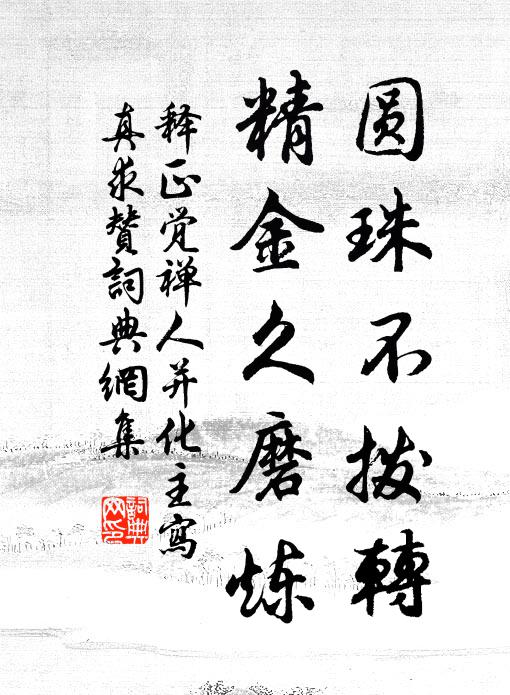 圆珠不拨轉
精金久磨炼
释正觉禅人并化主寫
真求赞詞典網集
詞典网印